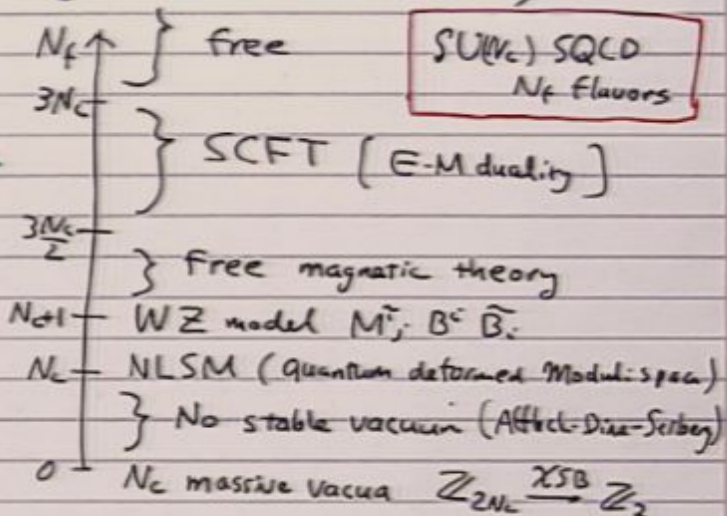 N_f } free
SU(N_c) SQCD
N_f flavors
3N_c
} SCFT [E-M duality]
3N_c/2
} Free magnetic theory
N_c+1 WZ model M^i_j B^i B̃_i
N_c NLSM (Quantum deformed Moduli space)
} No stable vacuum (Affleck-Dine-Seiberg)
0 N_c massive vacua ℤ_{2N_c} →^{χSB} ℤ_2